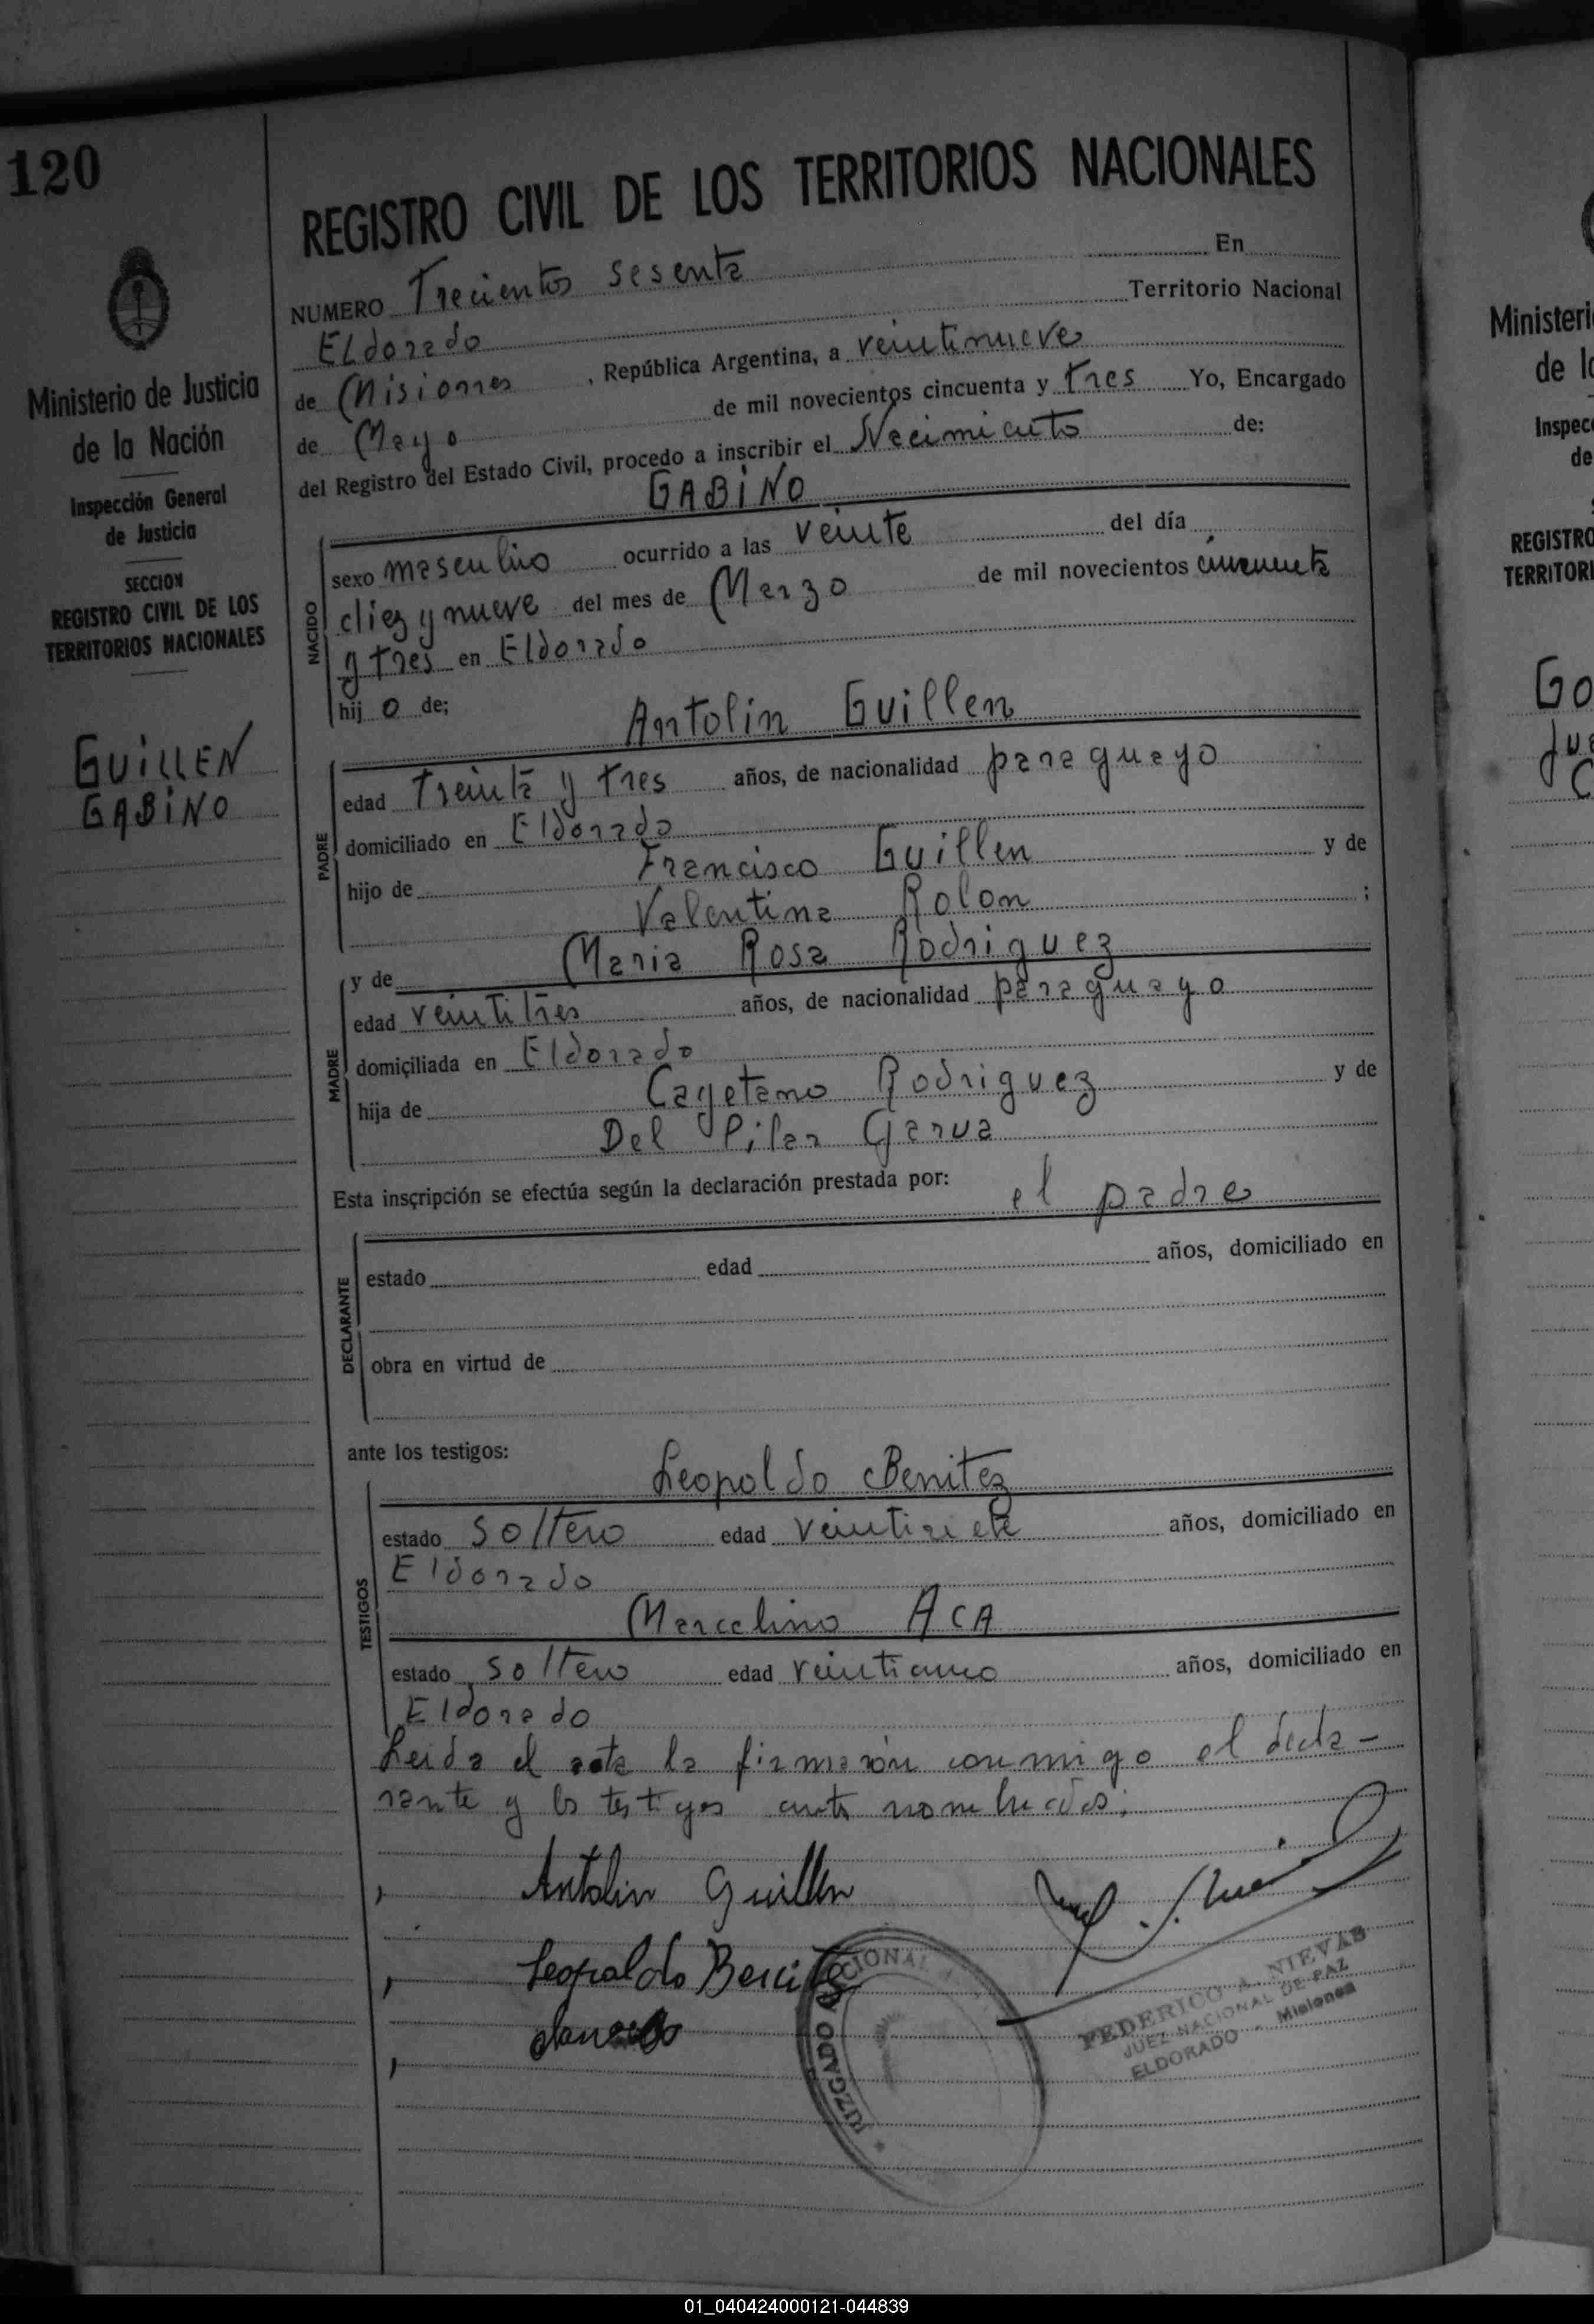 120
Ministerio de Justicia
de la Nación
Inspección General
de Justicia
SECCION
REGISTRO CIVIL DE LOS
TERRITORIOS NACIONALES
GUILLEN
GABINO
REGISTRO CIVIL DE LOS TERRITORIOS NACIONALES
NUMERO Trecientos sesenta En
Eldorado Territorio Nacional
de Misiones, República Argentina, a veintinueve
de Mayo de mil novecientos cincuenta y tres Yo, Encargado
del Registro del Estado Civil, procedo a inscribir el Nacimiento de:
GABINO
NACIDO
sexo masculino ocurrido a las veinte del día
diez y nueve del mes de Marzo de mil novecientos cincuenta
y tres en Eldorado
hij o de;
Antolin Guillen
PADRE
edad Treinta y tres años, de nacionalidad paraguayo
domiciliado en Eldorado
hijo de Francisco Guillen y de
Valentina Rolon ;
MADRE
y de Maria Rosa Rodriguez
edad veintitres años, de nacionalidad paraguayo
domiciliada en Eldorado
hija de Cayetano Rodriguez y de
Del Pilar Garua
Esta inscripción se efectúa según la declaración prestada por: el padre
DECLARANTE
estado edad años, domiciliado en
obra en virtud de
ante los testigos:
TESTIGOS
Leopoldo Benitez
estado soltero edad veintisiete años, domiciliado en
Eldorado
Marcelino ACA
estado soltero edad veinticinco años, domiciliado en
Eldorado
Leida el acta la firmaron conmigo el decla-
rante y los testigos antes nombrados.
Antolin Guillen
Leopoldo Benitez
JUZGADO
FEDERICO A. NIEVAS
JUEZ NACIONAL DE PAZ
ELDORADO - Misiones
Ministeri
de l
Inspec
de
REGISTRO
TERRITORI
Go
Ju
C
01_040424000121-044839